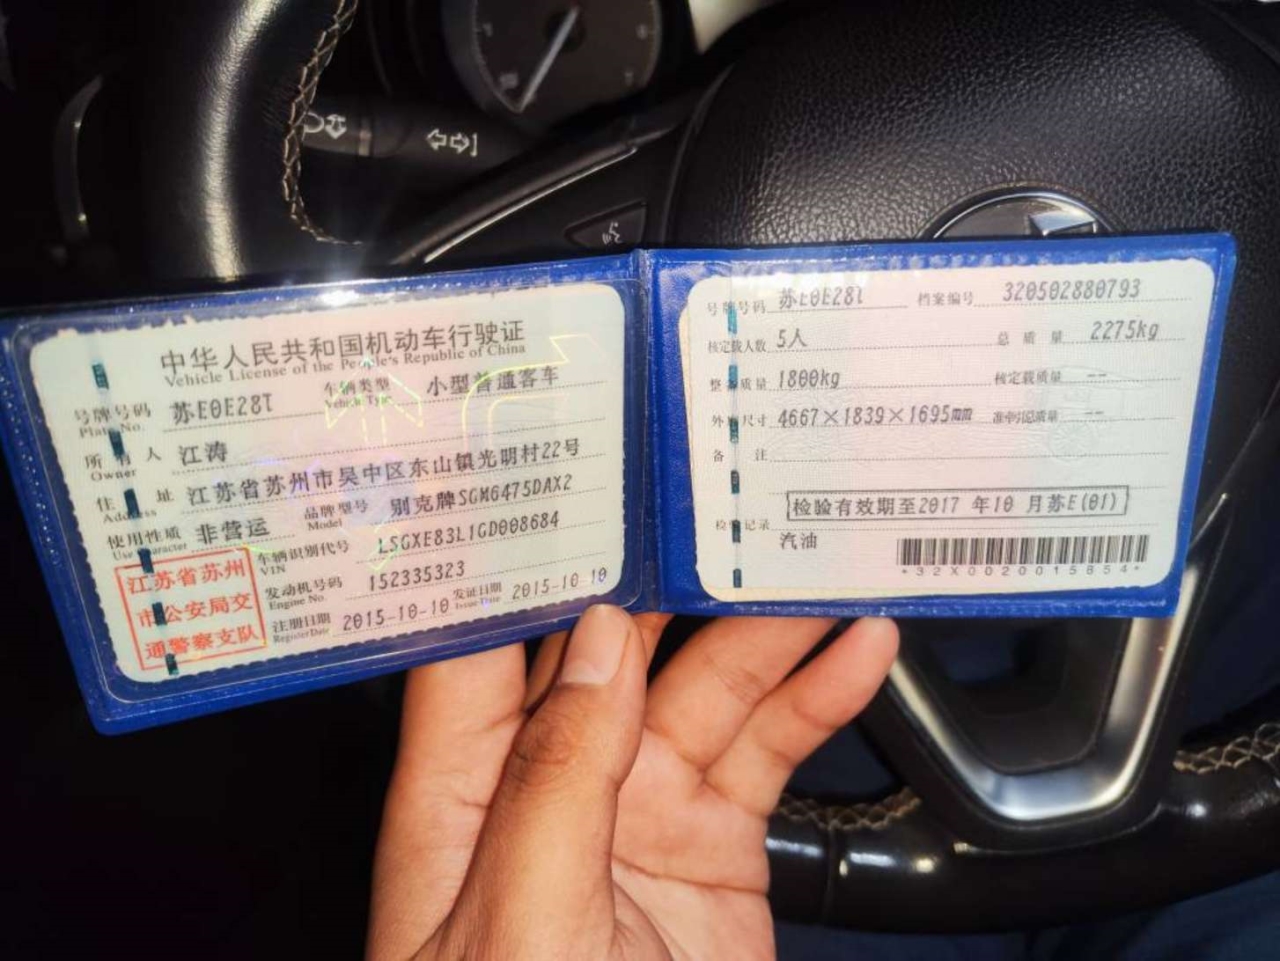 中华人民共和国机动车行驶证
Vehicle License of the People's Republic of China
号牌号码 苏E0E28T 车辆类型 小型普通客车
Plate No. Vehicle Type
所有人 江涛
Owner
住址 江苏省苏州市吴中区东山镇光明村22号
Address
使用性质 非营运 品牌型号 别克牌SGM6475DAX2
Use Character Model
车辆识别代号 LSGXE83L1GD008684
VIN
发动机号码 152335323
Engine No.
注册日期 2015-10-10 发证日期 2015-10-10
Register Date Issue Date
江苏省苏州
市公安局交
通警察支队
号牌号码 苏E0E28T 档案编号 320502880793
核定载人数 5人 总质量 2275kg
整备质量 1800kg 核定载质量 --
外廓尺寸 4667×1839×1695mm 准牵引总质量 --
备注
检验有效期至2017 年10 月苏E(01)
检验记录
汽油
*32X0020015854*